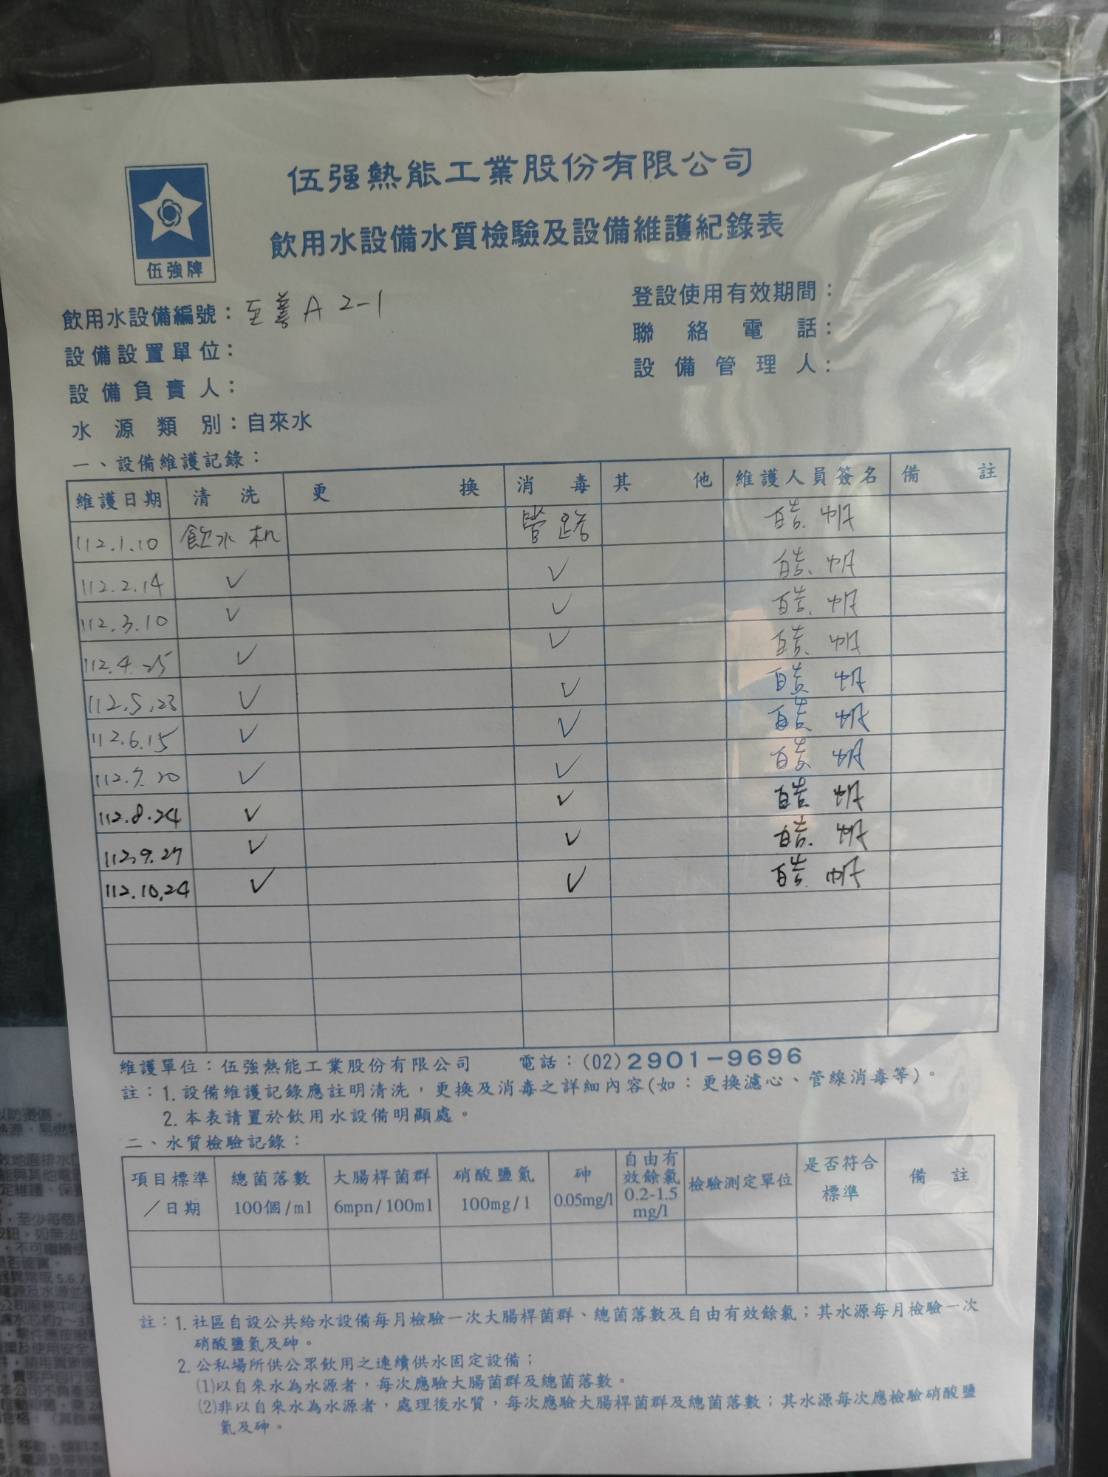 伍强熱能工業股份有限公司
伍強牌
飲用水設備水質檢驗及設備維護紀錄表
飲用水設備編號：至善A 2-1
登設使用有效期間：
設備設置單位：
聯絡電話：
設備負責人：
設備管理人：
水源類別：自來水
一、設備維護記錄：
維護日期 清洗 更換 消毒 其他 維護人員簽名 備註
112.1.10 飲水机 管路 皓帆
112.2.14 ✓ ✓ 皓帆
112.3.10 ✓ ✓ 皓帆
112.4.25 ✓ ✓ 皓帆
112.5.23 ✓ ✓ 皓帆
112.6.15 ✓ ✓ 皓帆
112.7.20 ✓ ✓ 皓帆
112.8.24 ✓ ✓ 皓帆
112.9.27 ✓ ✓ 皓帆
112.10.24 ✓ ✓ 皓帆
維護單位：伍強熱能工業股份有限公司 電話：(02)2901-9696
註：1.設備維護記錄應註明清洗，更換及消毒之詳細內容(如：更換濾心、管線消毒等)。
2.本表請置於飲用水設備明顯處。
二、水質檢驗記錄：
項目標準／日期 總菌落數 100個/ml 大腸桿菌群 6mpn/100ml 硝酸鹽氮 100mg/l 砷 0.05mg/l 自由有效餘氯 0.2-1.5 mg/l 檢驗測定單位 是否符合標準 備註
註：1.社區自設公共給水設備每月檢驗一次大腸桿菌群、總菌落數及自由有效餘氯；其水源每月檢驗一次
硝酸鹽氮及砷。
2.公私場所供公眾飲用之連續供水固定設備；
(1)以自來水為水源者，每次應驗大腸菌群及總菌落數。
(2)非以自來水為水源者，處理後水質，每次應驗大腸桿菌群及總菌落數；其水源每次應檢驗硝酸鹽
氮及砷。